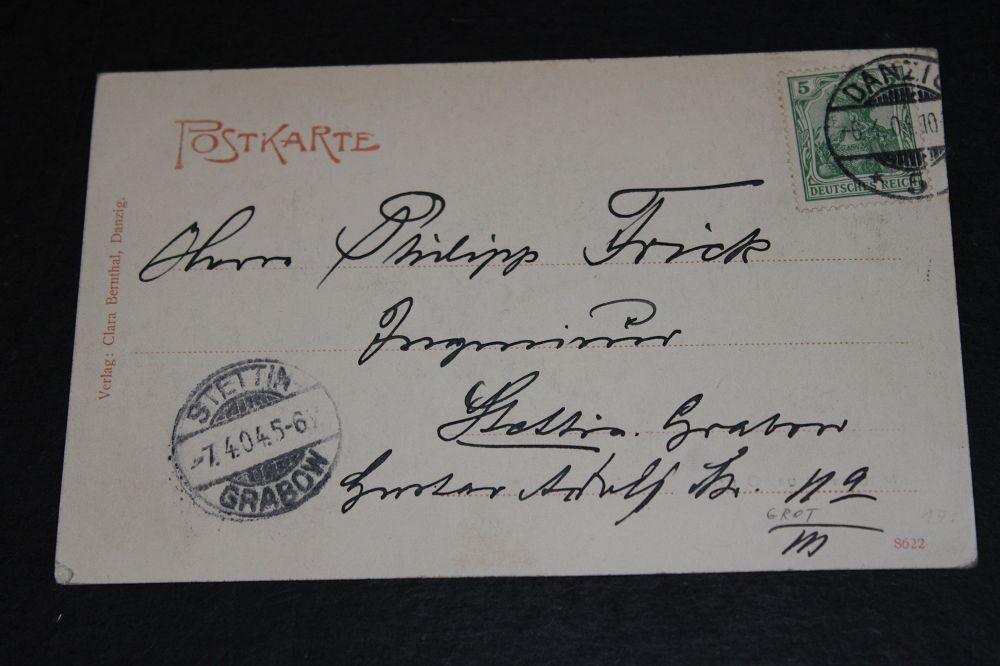 POSTKARTE
5
DEUTSCHES REICH
DANZIG
Verlag: Clara Bernthal, Danzig.
Herrn Philipp Frick
Ingenieur
Stettin. Grabow
Gustav Adolf Str. 11a
III
STETTIN
-7.4.04.5-6V
GRABOW
GROT
8622